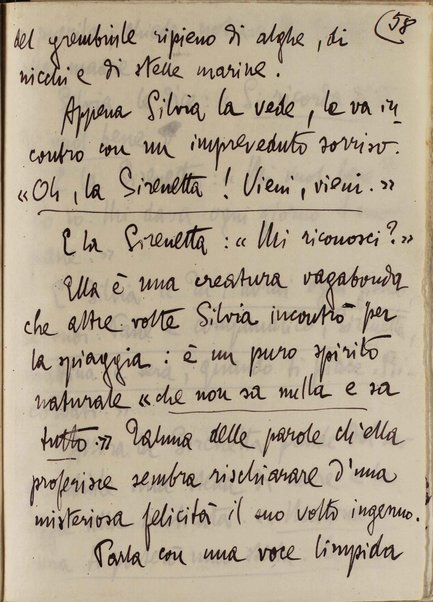 (58
del grembiule ripieno di alghe, di
nicchi e di stelle marine.
Appena Silvia la vede, le va in
contro con un impreveduto sorriso.
«Oh, la Sirenetta! Vieni, vieni.»
E la Sirenetta: «Mi riconosci?»
Ella è una creatura vagabonda
che altre volte Silvia incontrò per
la spiaggia: è un puro spirito
naturale «che non sa nulla e sa
tutto.» Taluna delle parole ch'ella
proferisce sembra rischiarare d'una
misteriosa felicità il suo volto ingenuo.
Parla con una voce limpida